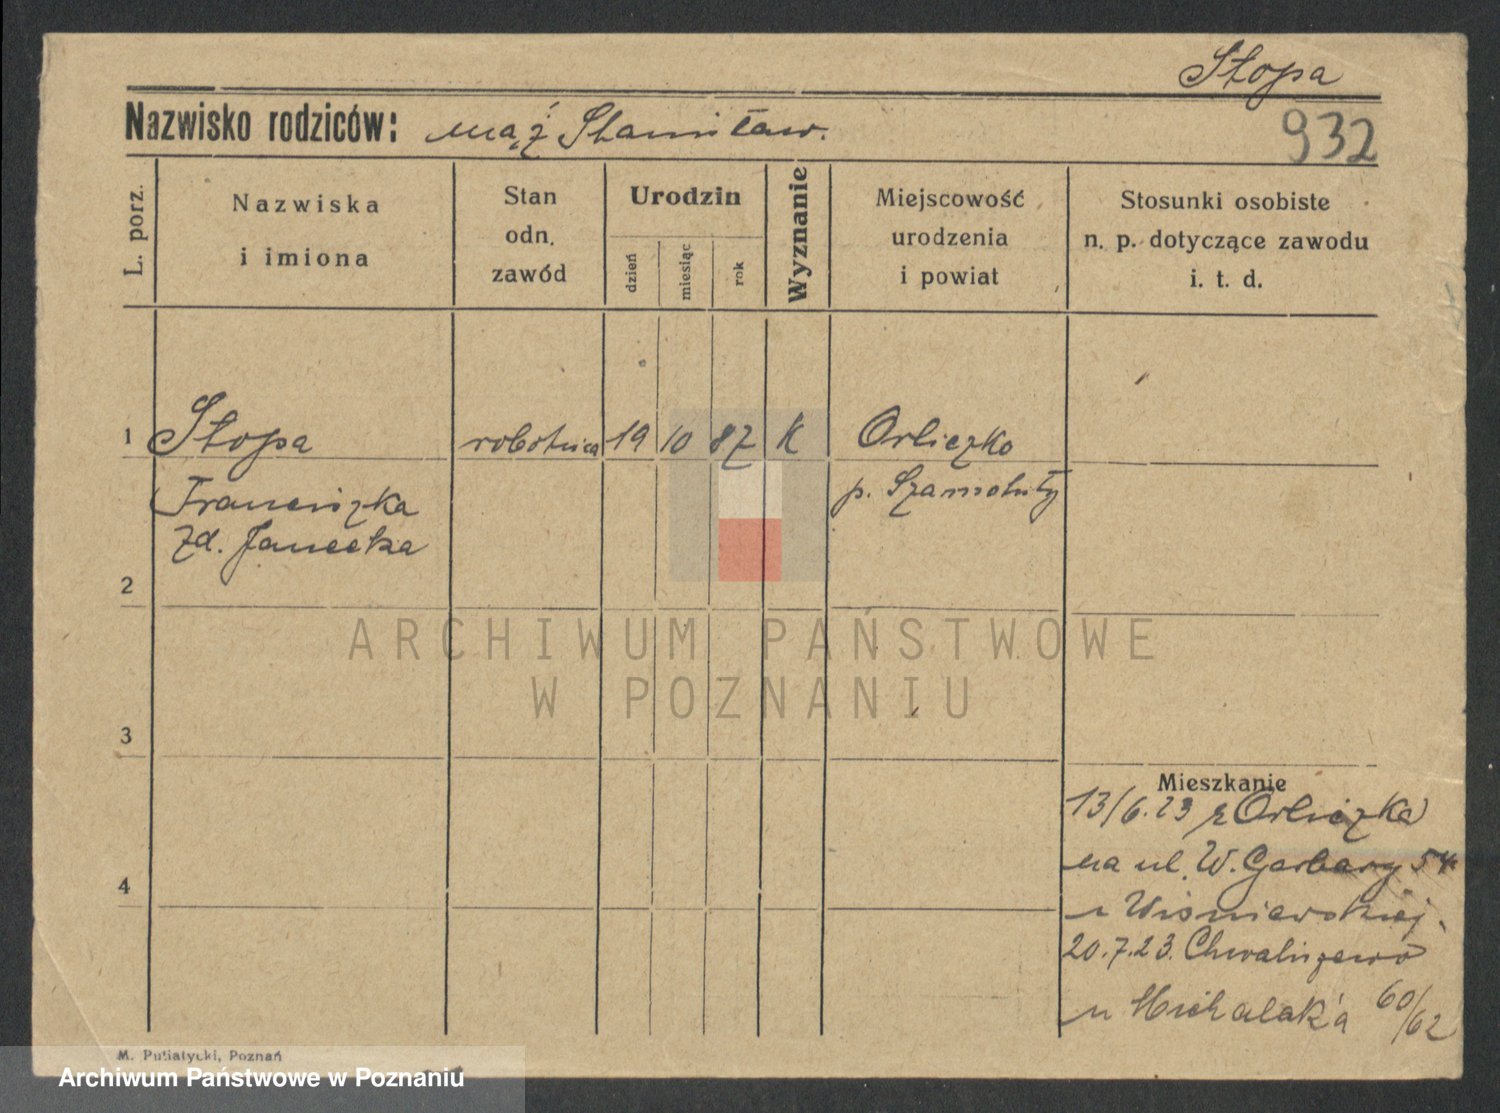 Stopa
Nazwisko rodziców: mąż Stanisław.
932
L. porz.
Nazwiska
i imiona
Stan
odn.
zawód
Urodzin
dzień
miesiąc
rok
Wyznanie
Miejscowość
urodzenia
i powiat
Stosunki osobiste
n. p. dotyczące zawodu
i. t. d.
1 Stopa robotnica 19 10 87 K Orliczko
Franciszka p. Szamotuły
zd. Janecka
2
ARCHIWUM PAŃSTWOWE
W POZNANIU
3
Mieszkanie
13/6.23 z Orliczka
4
na ul. W. Garbary 54
u Wiśniewskiej.
20.7.23. Chwaliszewo
u Michalaka 60/62
M. Putiatycki, Poznań
Archiwum Państwowe w Poznaniu